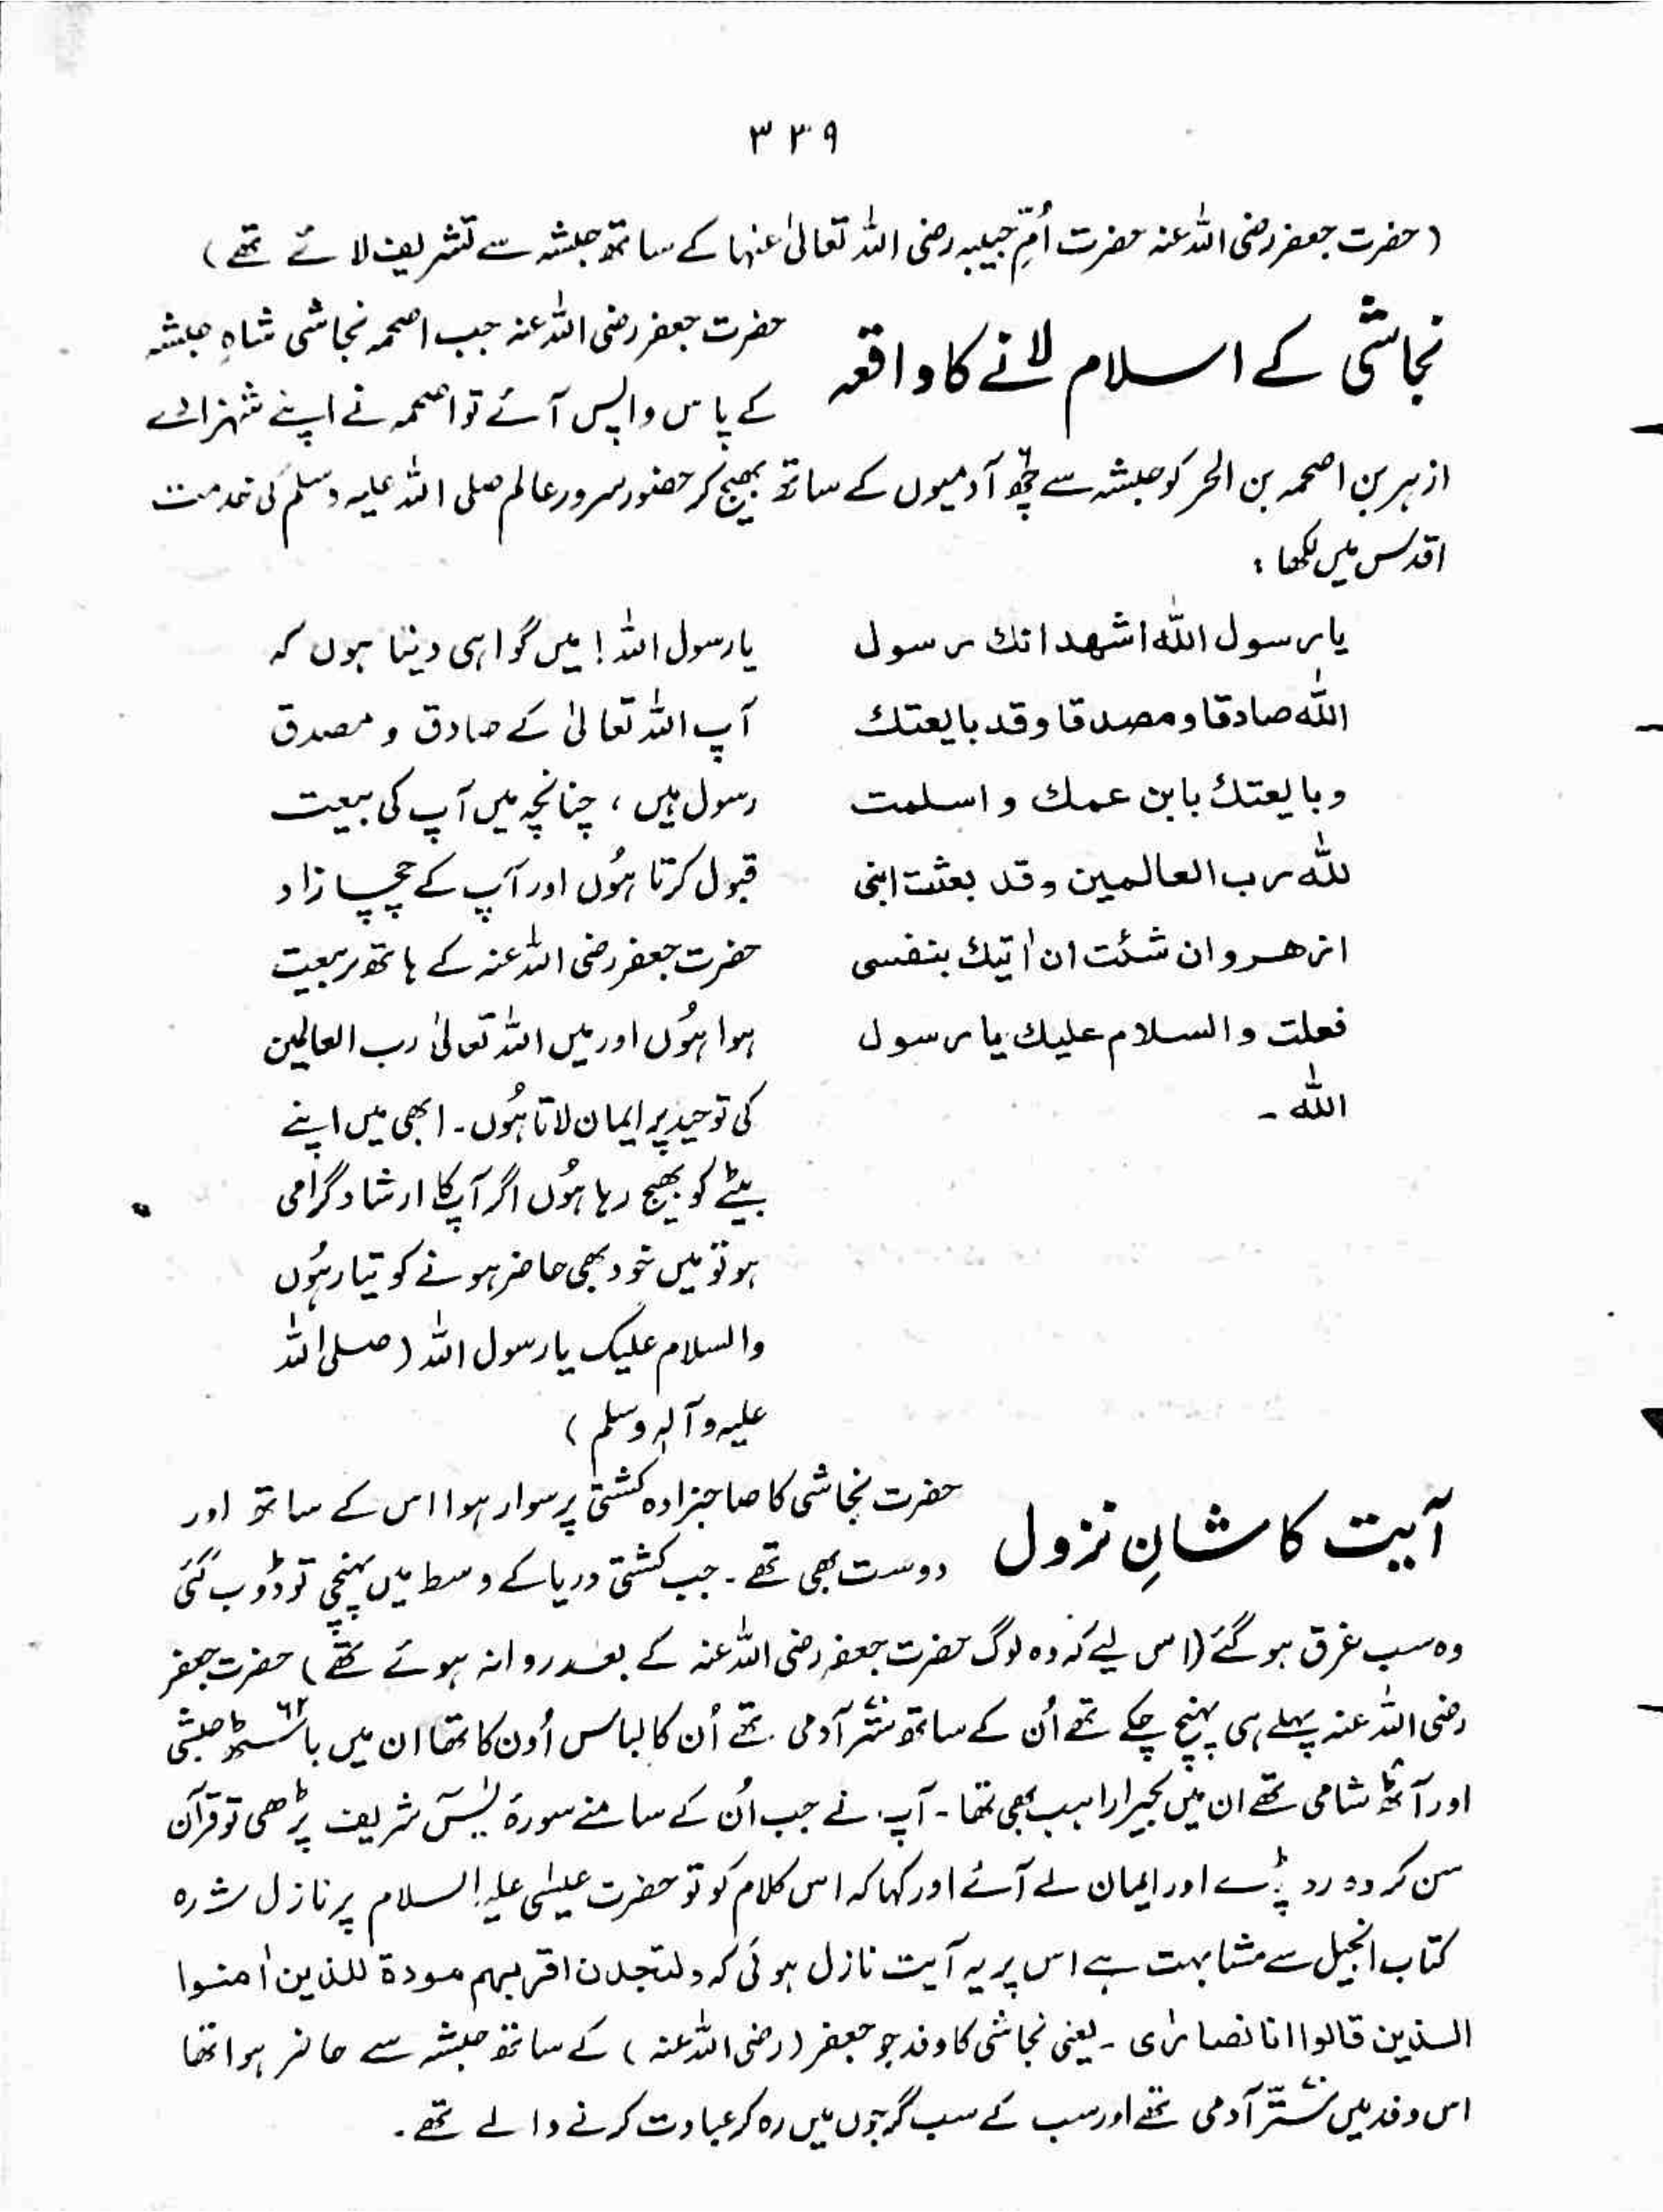 ۳۳۹
(حضرت جعفر رضی اللہ عنہ حضرت اُمِّ حبیبہ رضی اللہ تعالیٰ عنہا کے ساتھ حبشہ سے تشریف لائے تھے)
نجاشی کے اسلام لانے کا واقعہ
حضرت جعفر رضی اللہ عنہ جب اصحمہ نجاشی شاہِ حبشہ
کے پاس واپس آئے تو اصحمہ نے اپنے شہزادے
ازہر بن اصحمہ بن الحر کو حبشہ سے چھ آدمیوں کے ساتھ بھیج کر حضور سرور عالم صلی اللہ علیہ وسلم کی خدمت
اقدس میں لکھا :
یا رسول الله اشهد انك رسول
الله صادقا و مصدقا وقد بايعتك
وبايعتك بابن عمك و اسلمت
لله رب العالمين وقد بعثت ابنی
ازهر وان شئت ان اٰتيك بنفسی
فعلت والسلام عليك يا رسول
الله ۔
یا رسول اللہ ! میں گواہی دیتا ہوں کہ
آپ اللہ تعالیٰ کے صادق و مصدق
رسول ہیں ، چنانچہ میں آپ کی بیعت
قبول کرتا ہُوں اور آپ کے چچا زاد
حضرت جعفر رضی اللہ عنہ کے ہاتھ پر بیعت
ہوا ہُوں اور میں اللہ تعالیٰ رب العالمین
کی توحید پر ایمان لاتا ہُوں ۔ ابھی میں اپنے
بیٹے کو بھیج رہا ہُوں اگر آپ کا ارشاد گرامی
ہو تو میں خود بھی حاضر ہونے کو تیار ہُوں
والسلام علیک یا رسول اللہ (صلی اللہ
علیہ وآلہٖ وسلم)
آیت کا شانِ نزول
حضرت نجاشی کا صاحبزادہ کشتی پر سوار ہوا اس کے ساتھ اور
دوست بھی تھے ۔ جب کشتی دریا کے وسط میں پہنچی تو ڈوب گئی
وہ سب غرق ہو گئے (اس لیے کہ وہ لوگ حضرت جعفر رضی اللہ عنہ کے بعد روانہ ہوئے تھے) حضرت جعفر
رضی اللہ عنہ پہلے ہی پہنچ چکے تھے اُن کے ساتھ ستّر آدمی تھے اُن کا لباس اُون کا تھا ان میں باسٹھ۶۲ حبشی
اور آٹھ شامی تھے ان میں بحیرا راہب بھی تھا ۔ آپ نے جب اُن کے سامنے سورۂ یٰسٓ شریف پڑھی تو قرآن
سن کر وہ رو پڑے اور ایمان لے آئے اور کہا کہ اس کلام کو تو حضرت عیسٰی علیہ السلام پر نازل شدہ
کتاب انجیل سے مشابہت ہے اس پر یہ آیت نازل ہوئی کہ ولتجدن اقربہم مودة للذین اٰمنوا
الذین قالوا انا نصارٰی ۔ یعنی نجاشی کا وفد جو جعفر (رضی اللہ عنہ) کے ساتھ حبشہ سے حاضر ہوا تھا
اس وفد میں ستّر آدمی تھے اور سب کے سب گرجوں میں رہ کر عبادت کرنے والے تھے ۔